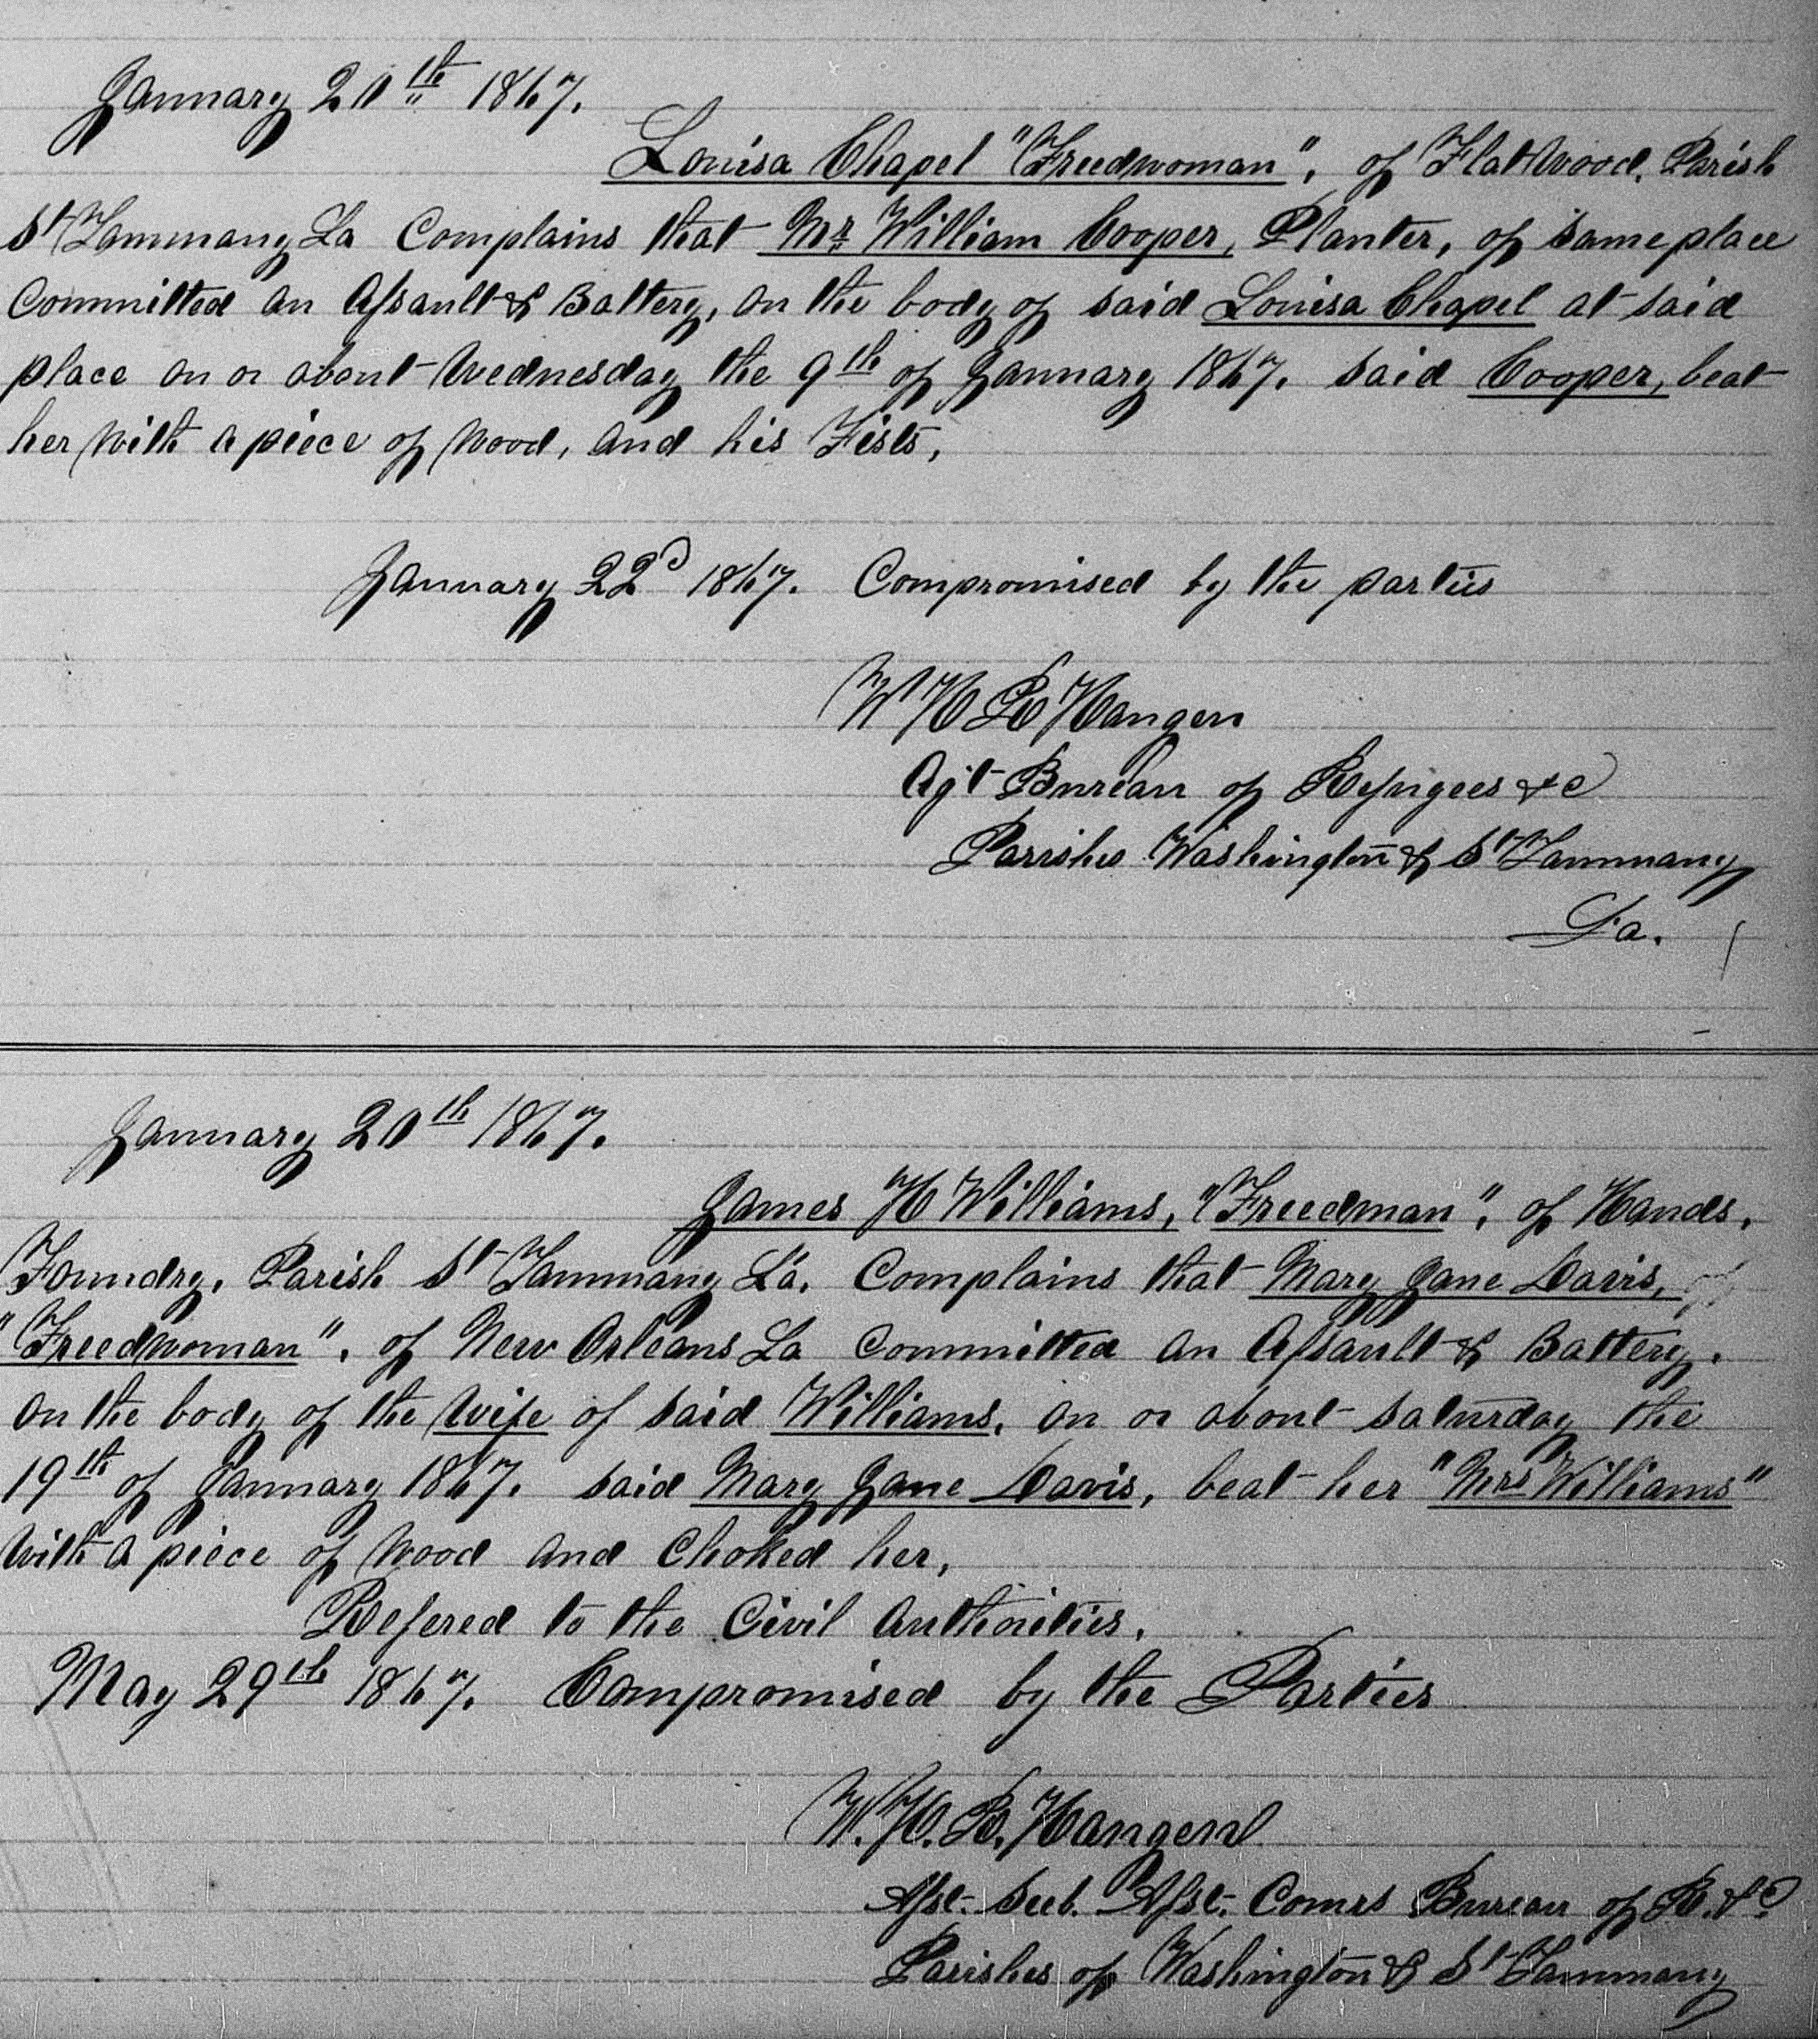 January 20th 1867.
Louisa Chapel "Freedwoman", of Flatwood, Parish
St Tammany La Complains that Mr William Cooper, Planter, of same place
Committed an Assault & Battery, on the body of said Louisa Chapel at said
place on or about Wednesday the 9th of January 1867. Said Cooper, beat
her with a piece of wood, and his Fists,
January 22d 1867. Compromised by the parties
W H R Hangen
Agt Bureau of Refugees &c
Parishes Washington & St Tammany
La.
January 20th 1867.
James H Williams, "Freedman", of Hands,
Foundry, Parish St Tammany La. Complains that Mary Jane Davis, of
"Freedwoman", of New Orleans La Committed an Assault & Battery.
on the body of the wife of said Williams, on or about Saturday the
19th of January 1867. said Mary Jane Davis, beat her "Mrs Williams"
with a piece of wood and Choked her,
Refered to the Civil Authorities.
May 29th 1867. Compromised by the Parties
W. H. R. Hangen
Asst. Sub. Asst. Comrs Bureau of R. &c
Parishes of Washington & St Tammany